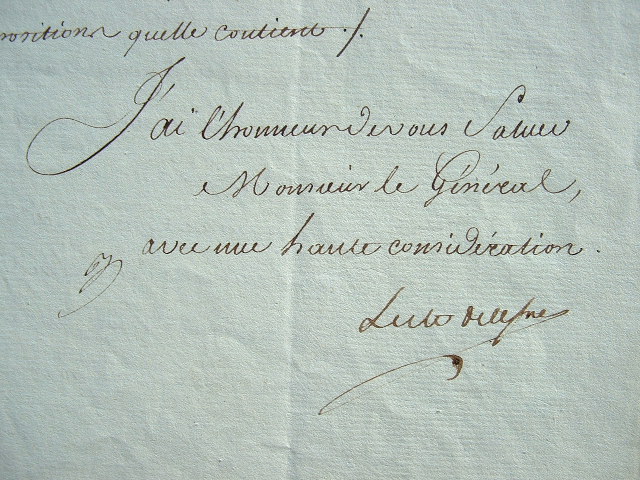 positions quelle contient ./.
J'ai l'honneur de vous Saluer
Monsieur le Général,
avec une haute considération.